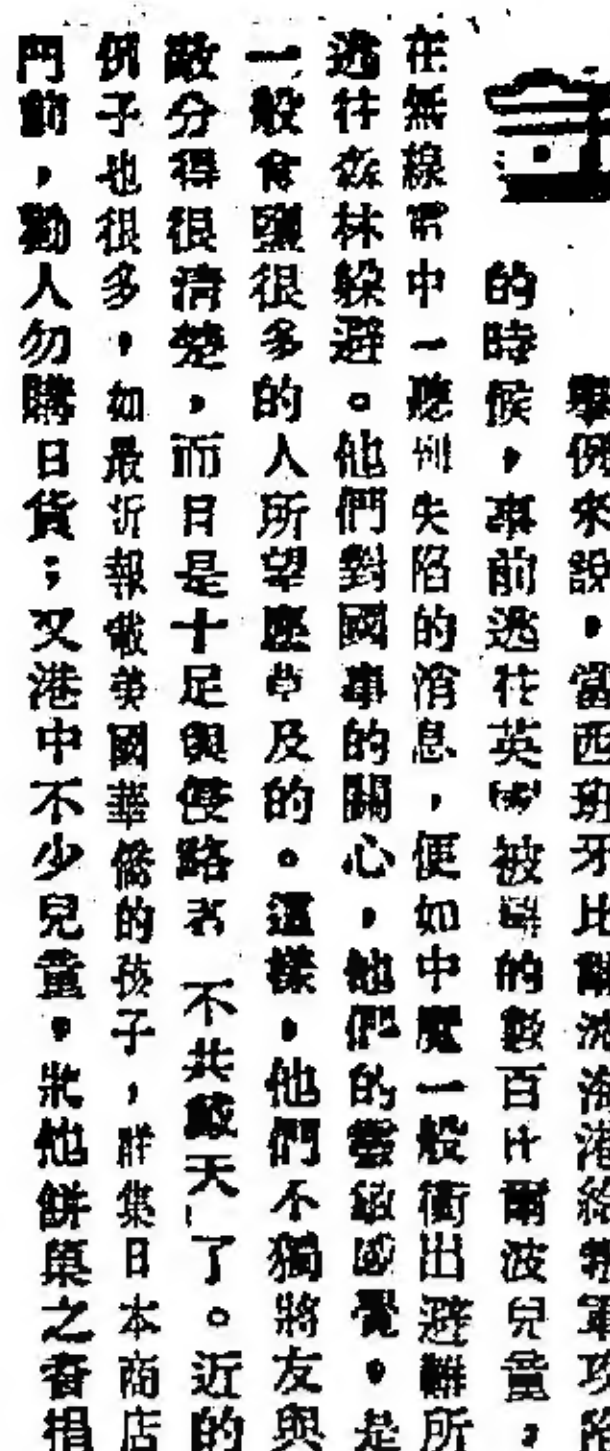 舉例來說,當西班牙比爾波海港終被叛軍攻陷
的時候,事前逃往英國被難的數百比爾波兒童,
在無線電中一聽到失陷的消息,便如中魔一般衝出避難所
逃往森林躲避。他們對國事的關心,他們的靈敏感覺,是
一般食鹽很多的人所望塵莫及的。這樣,他們不獨將友與
敵分得很清楚,而且是十足與侵略者 不共戴天」了。近的
例子也很多,如最近報載美國華僑的孩子,群集日本商店
門前,勸人勿購日貨;又港中不少兒童,將他餅菓之資捐